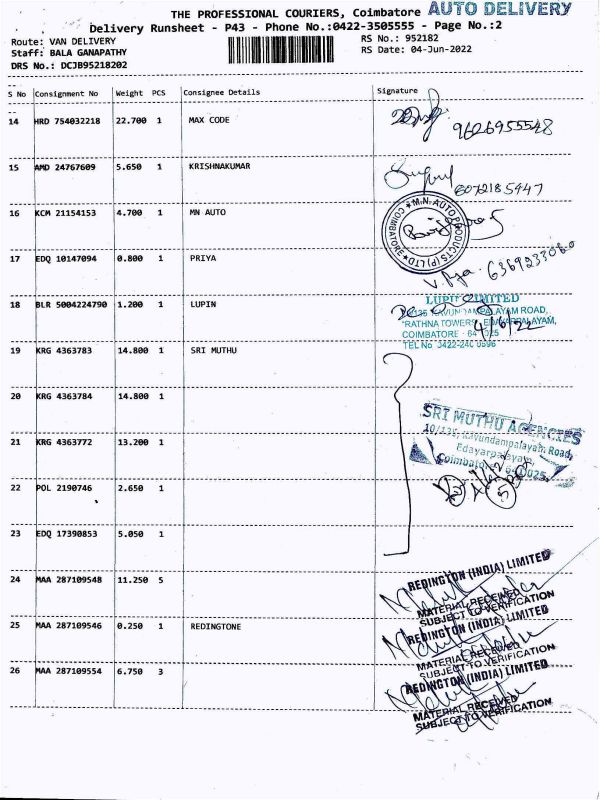 THE PROFESSIONAL COURIERS, Coimbatore AUTO DELIVERY
Delivery Runsheet - P43 - Phone No.:0422-3505555 - Page No.:2
Route: VAN DELIVERY RS No.: 952182
Staff: BALA GANAPATHY RS Date: 04-Jun-2022
DRS No.: DCJB95218202
S No Consignment No Weight PCS Consignee Details Signature
14 HRD 754032218 22.700 1 MAX CODE
9626955548
15 AMD 24767609 5.650 1 KRISHNAKUMAR
16 KCM 21154153 4.700 1 MN AUTO
M.N. AUTO PRODUCTS (P) LTD COIMBATORE
17 EDQ 10147094 0.800 1 PRIYA
18 BLR 5004224790 1.200 1 LUPIN
LUPIN LIMITED
KAVUNDAMPALAYAM ROAD,
"RATHNA TOWERS" EDAYARPALAYAM,
COIMBATORE
4/6/22
TEL No
19 KRG 4363783 14.800 1 SRI MUTHU
20 KRG 4363784 14.800 1
SRI MUTHU AGENCIES
10/135, Kavundampalayam Road,
Edayarpalayam,
Coimbatore - 641025.
21 KRG 4363772 13.200 1
22 POL 2190746 2.650 1
5
23 EDQ 17390853 5.050 1
24 MAA 287109548 11.250 5
REDINGTON (INDIA) LIMITED
MATERIAL RECEIVED
SUBJECT TO VERIFICATION
25 MAA 287109546 0.250 1 REDINGTONE
REDINGTON (INDIA) LIMITED
MATERIAL RECEIVED
SUBJECT TO VERIFICATION
26 MAA 287109554 6.750 3
REDINGTON (INDIA) LIMITED
MATERIAL RECEIVED
SUBJECT TO VERIFICATION